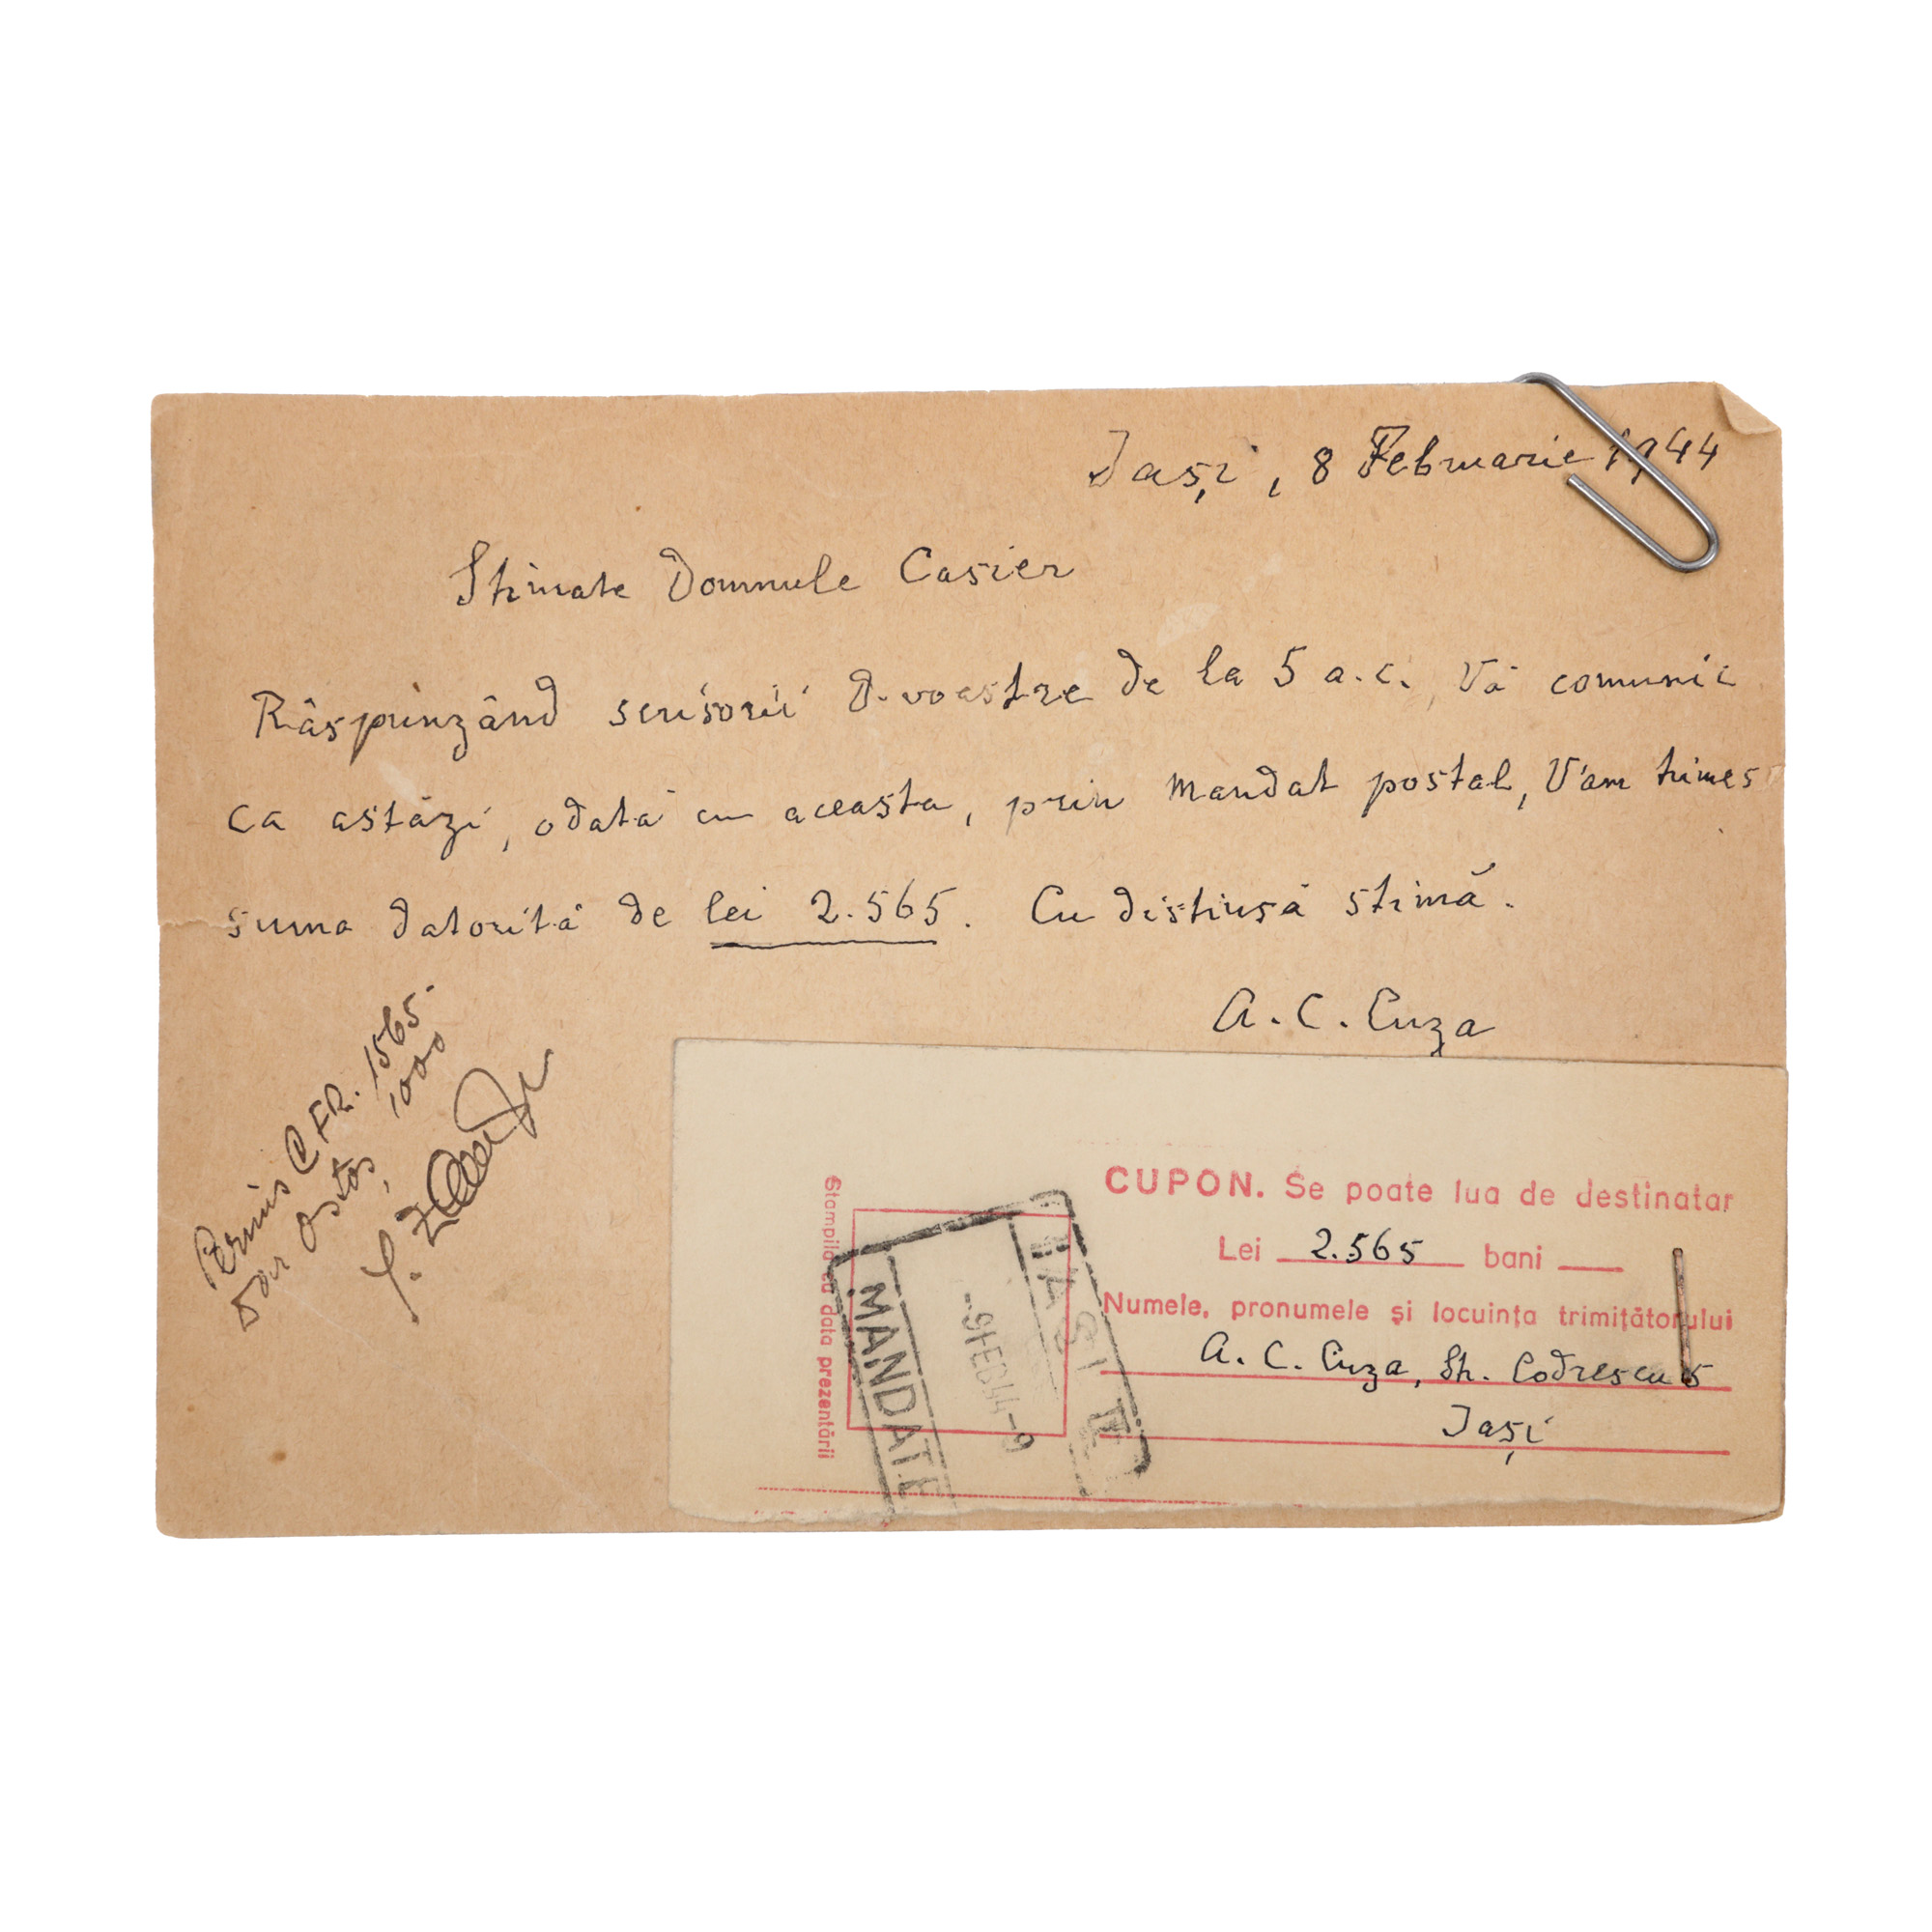 Iași, 8 Februarie 1944
Stimate Domnule Casier
Răspunzând scrisorii D-voastre de la 5 a.c. Vă comunic
ca astăzi, odată cu aceasta, prin mandat postal, V'am trimes
suma datorită de lei 2.565. Cu distinsă stimă.
A. C. Cuza
Permis CFR. 1565.
1000
CUPON. Se poate lua de destinatar
Lei 2.565 bani
Numele, pronumele și locuința trimițătorului
A. C. Cuza, Str. Codrescu 5
Iași
Stampila cu data prezentării
IASI II
-9FEB44-9
MANDATE